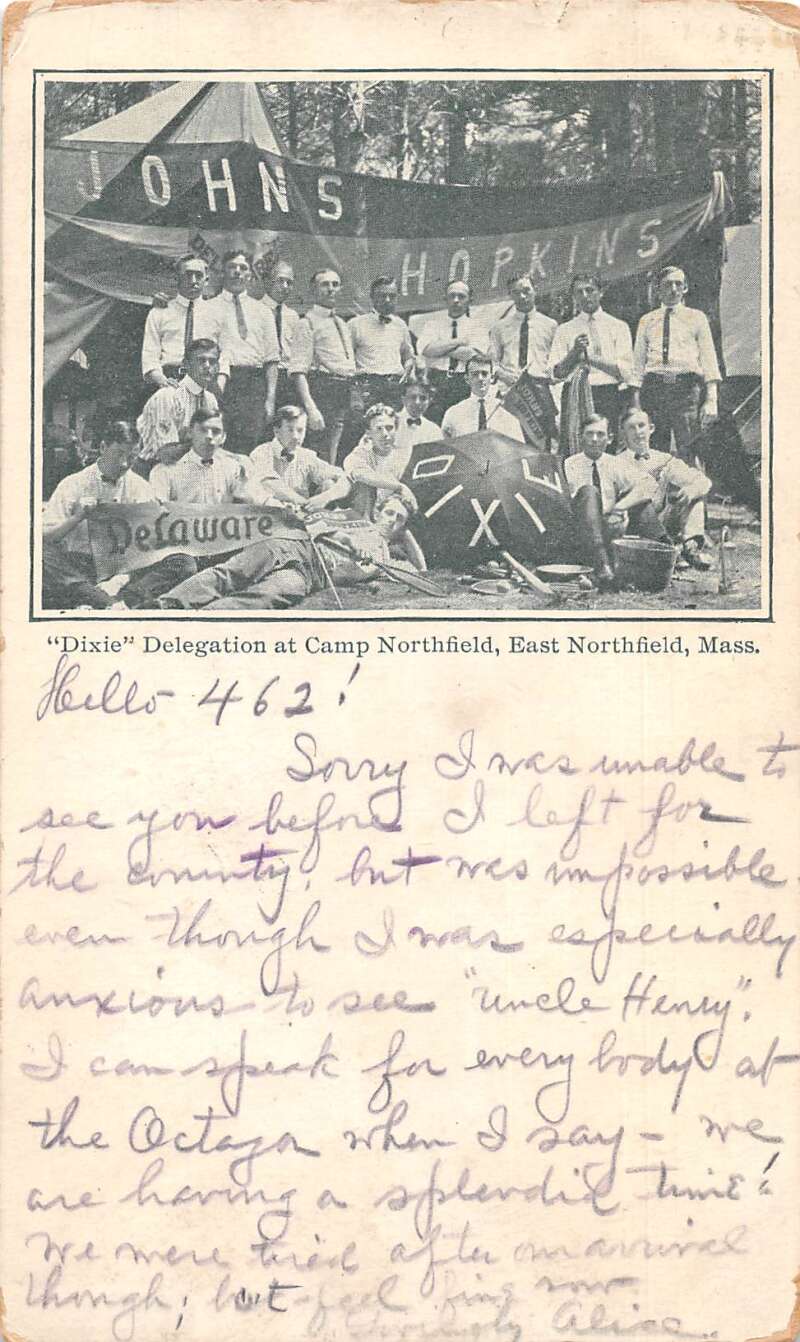 JOHNS
HOPKINS
DELAWARE
DIXIE
"Dixie" Delegation at Camp Northfield, East Northfield, Mass.
Hello 462!
Sorry I was unable to
see you before I left for
the country, but was impossible
even though I was especially
anxious to see "Uncle Henry".
I can speak for everybody at
the Octagon when I say – we
are having a splendid time!
We were tired after our arrival
though, but feel fine now
Alice.